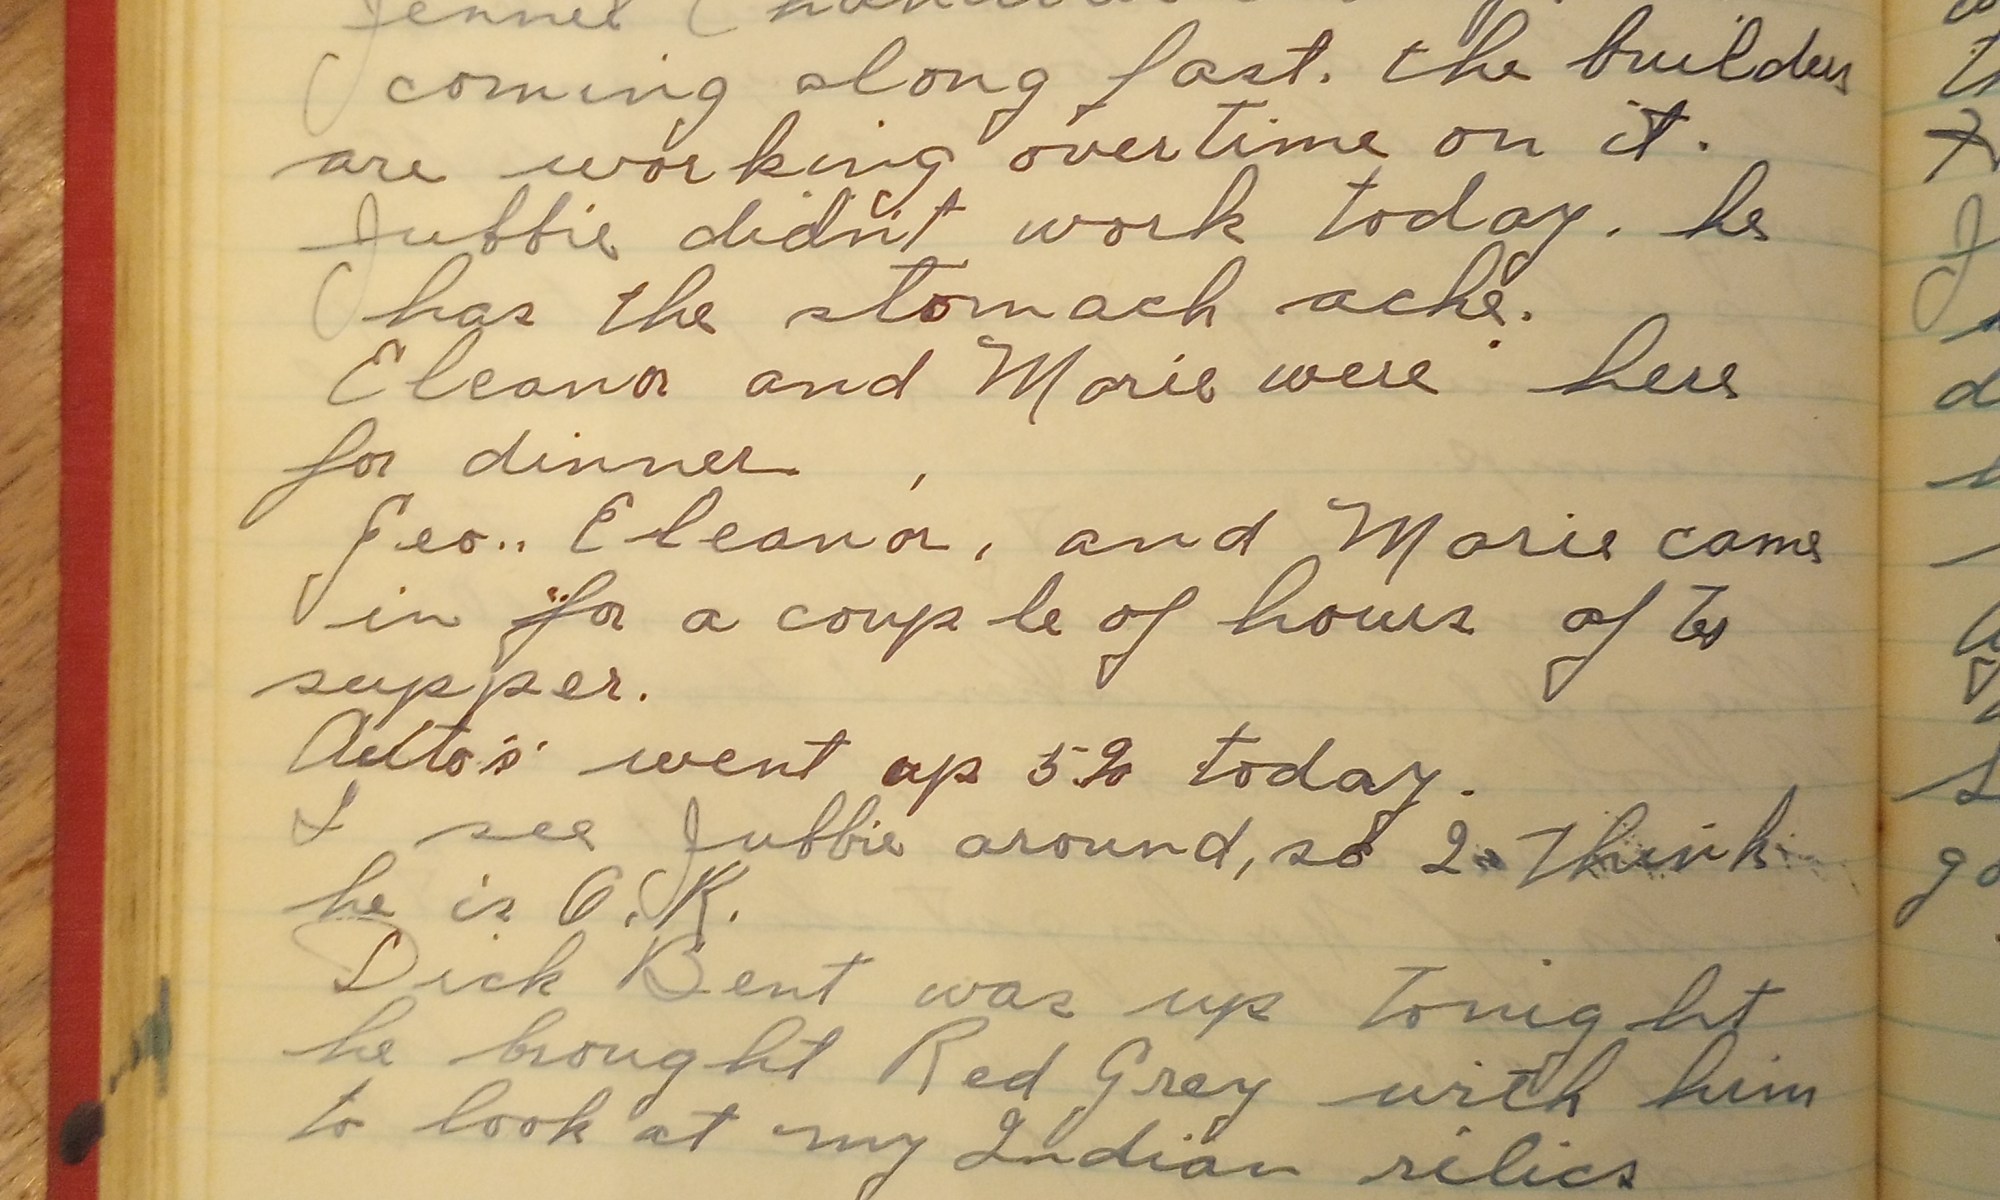 coming along fast. the builders
are working overtime on it.
Jubbie didn't work today. he
has the stomach ache.
Eleanor and Marie were here
for dinner
Geo.. Eleanor, and Marie came
in for a couple of hours after
supper.
Auto's went up 5% today.
I see Jubbie around, so I think
he is O.K.
Dick Bent was up tonight
he brought Red Grey with him
to look at my Indian relics